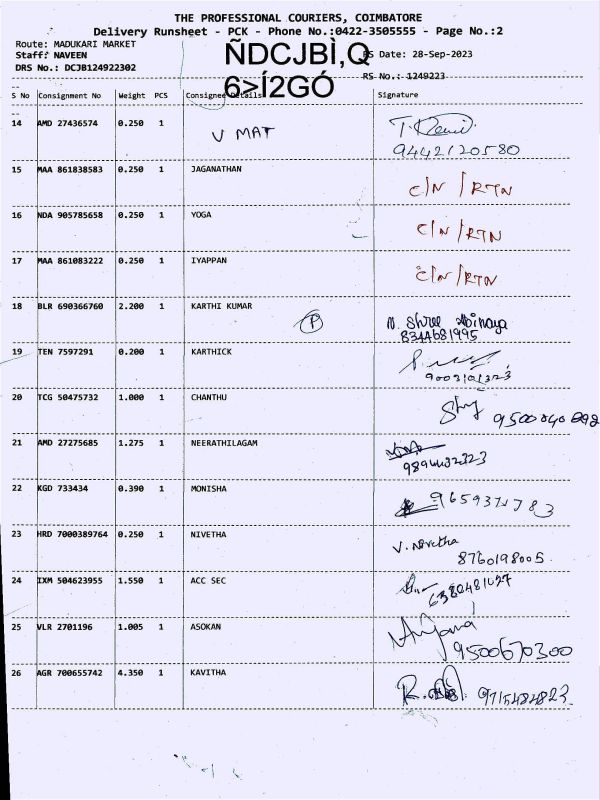 THE PROFESSIONAL COURIERS, COIMBATORE
Delivery Runsheet - PCK - Phone No.:0422-3505555 - Page No.:2
Route: MADUKARI MARKET
Staff: NAVEEN
DRS No.: DCJB124922302
ÑDCJBÌ,Q
6>Í2GÓ
RS Date: 28-Sep-2023
RS No.: 1249223
S No Consignment No Weight PCS Consignee Details Signature
14 AMD 27436574 0.250 1 V MAT
9442120580
15 MAA 861838583 0.250 1 JAGANATHAN C/N / RTN
16 NDA 905785658 0.250 1 YOGA C/N / RTN
17 MAA 861083222 0.250 1 IYAPPAN C/N / RTN
18 BLR 690366760 2.200 1 KARTHI KUMAR P N. Shree Abinaya
8344681995
19 TEN 7597291 0.200 1 KARTHICK
20 TCG 50475732 1.000 1 CHANTHU
21 AMD 27275685 1.275 1 NEERATHILAGAM
22 KGD 733434 0.390 1 MONISHA
23 HRD 7000389764 0.250 1 NIVETHA V. Nivetha
8760198005
24 IXM 504623955 1.550 1 ACC SEC
25 VLR 2701196 1.005 1 ASOKAN
9500670300
26 AGR 700655742 4.350 1 KAVITHA